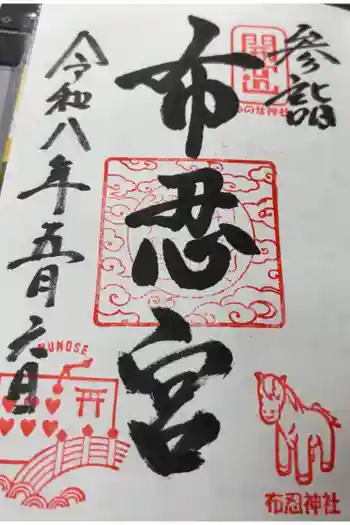 参詣
開運
布忍宮
令和八年五月六日
NUNOSE
布忍神社